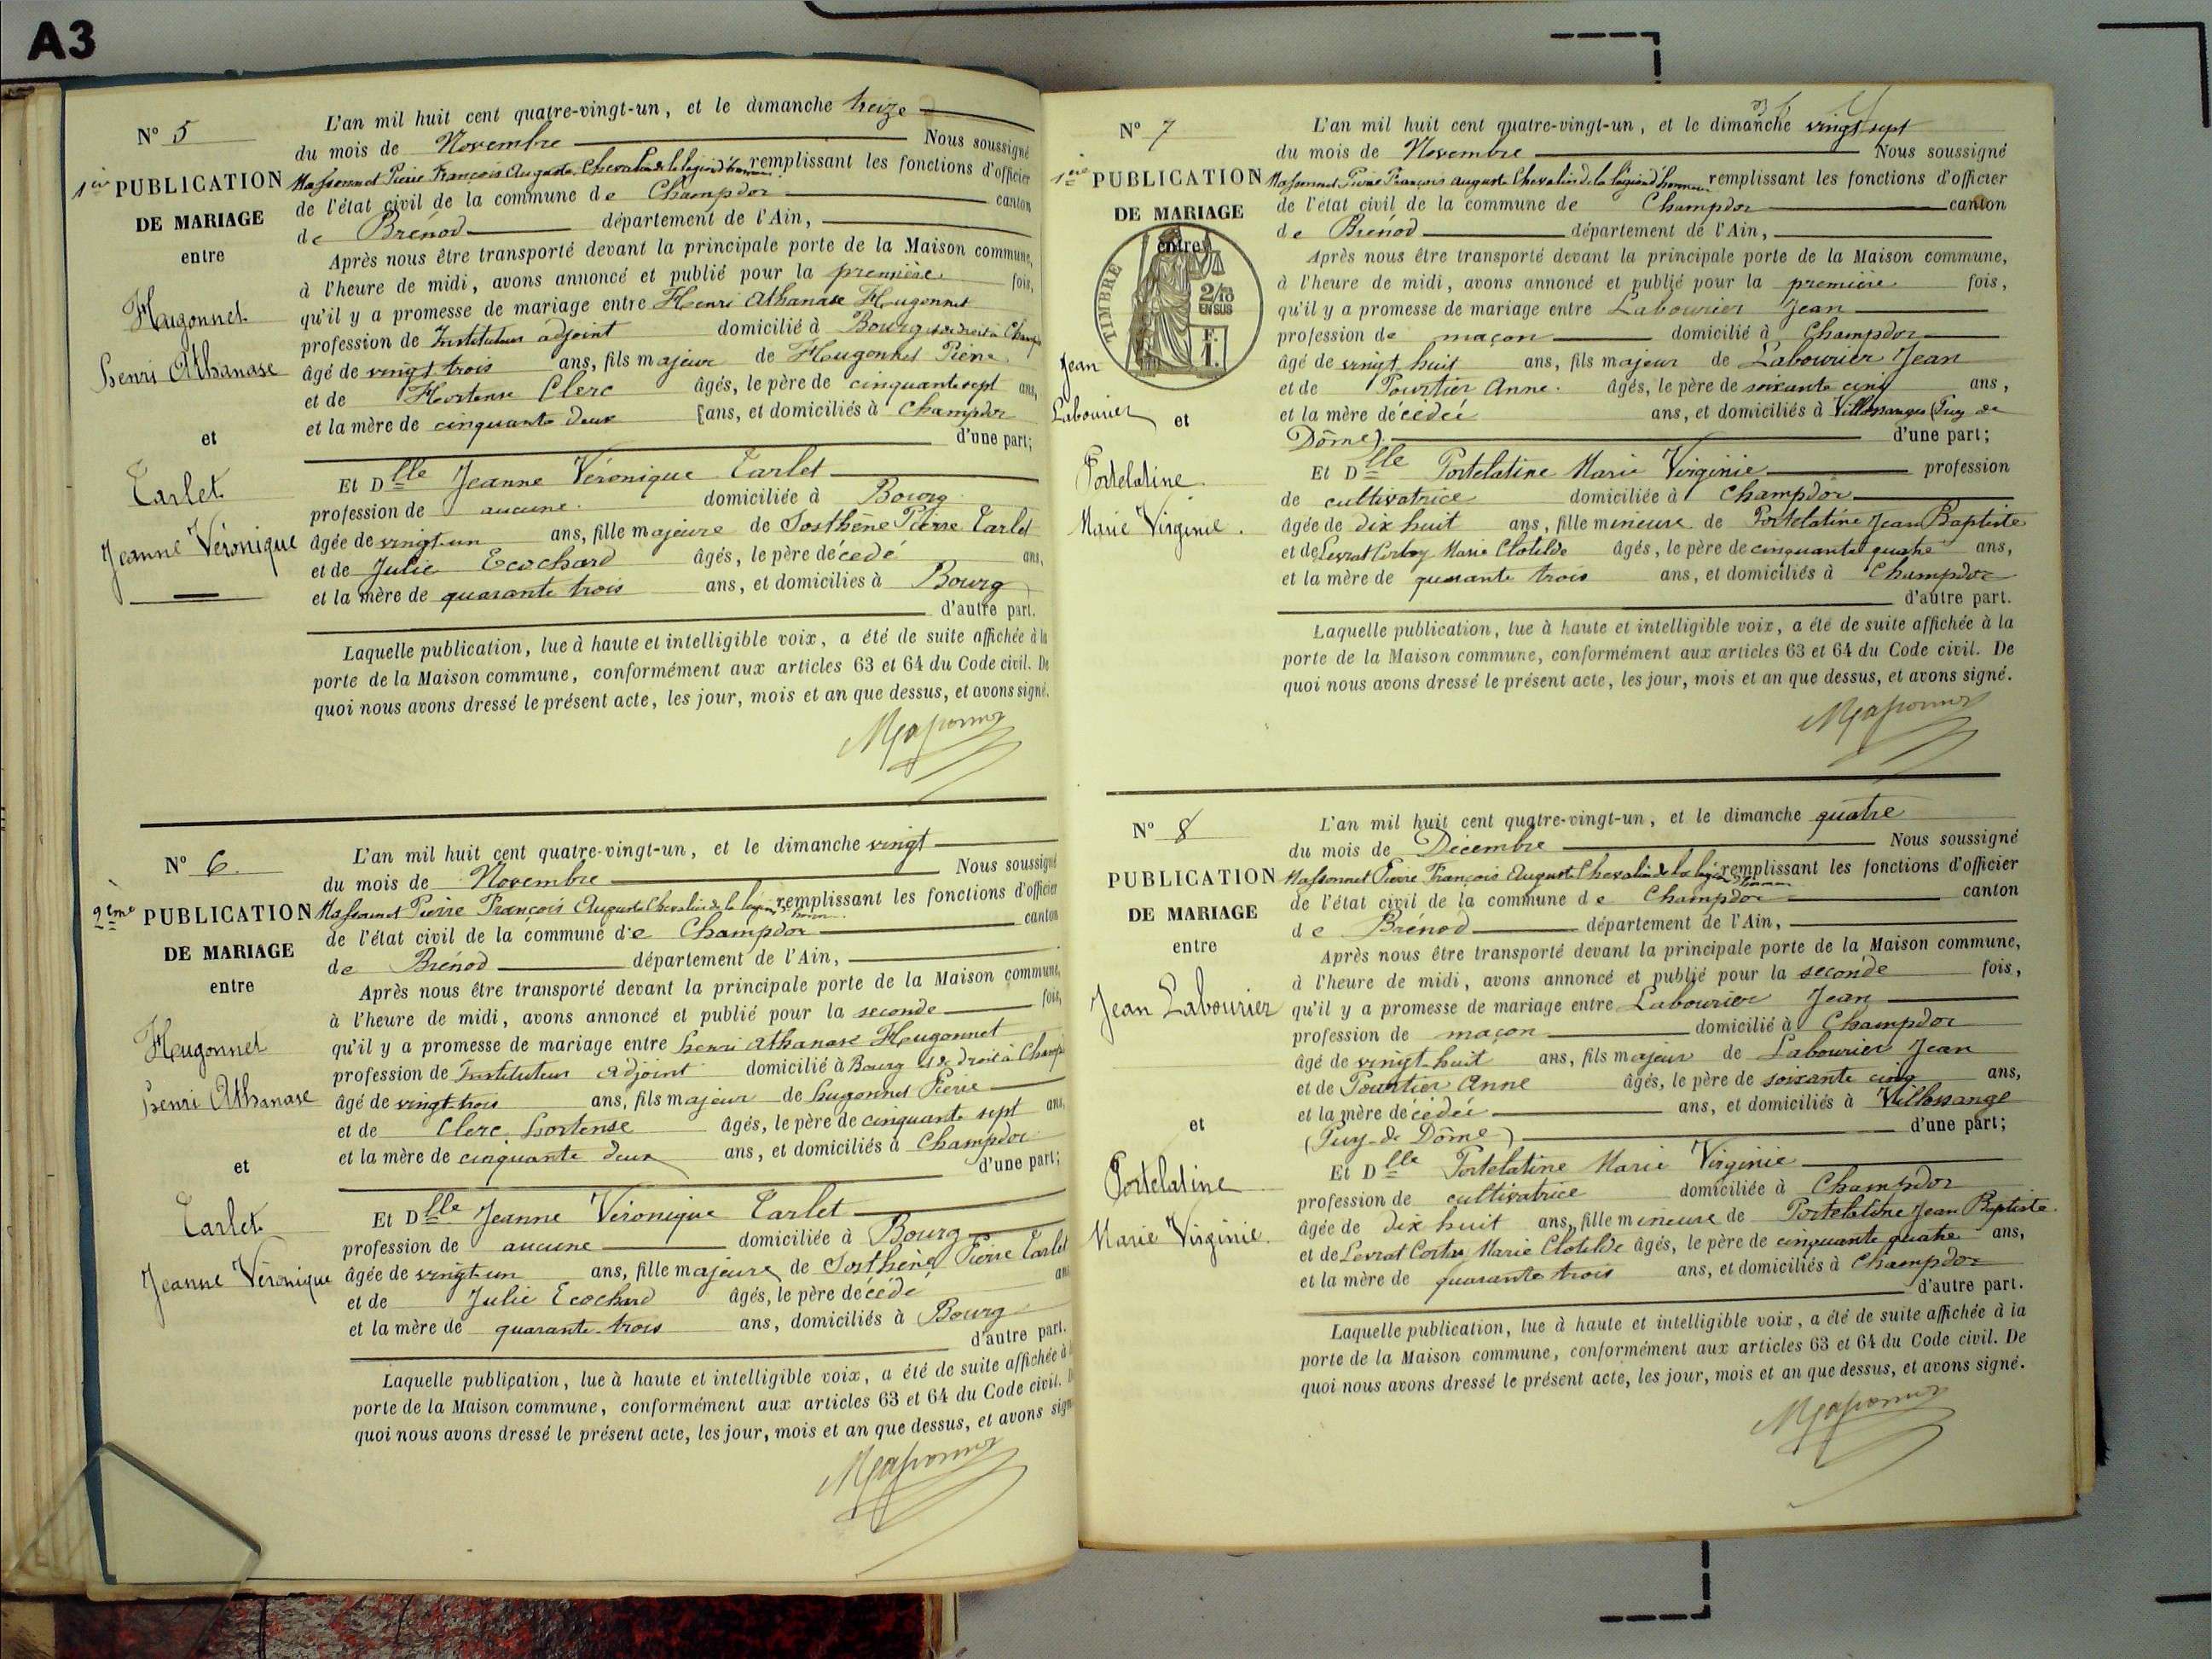 A3
N° 5
1ère PUBLICATION
DE MARIAGE
entre
Hugonnet
Henri Athanase
et
Tarlet
Jeanne Véronique
L'an mil huit cent quatre-vingt-un, et le dimanche treize
du mois de Novembre Nous soussigné
Massonnet Pierre François Auguste Chevalier de la légion d'honneur remplissant les fonctions d'officier
de l'état civil de la commune de Champdor canton
de Brénod département de l'Ain,
Après nous être transporté devant la principale porte de la Maison commune,
à l'heure de midi, avons annoncé et publié pour la première fois,
qu'il y a promesse de mariage entre Henri Athanase Hugonnet
profession de Instituteur adjoint domicilié à Bourg et de droit à Champ
âgé de vingt trois ans, fils majeur de Hugonnet Pierre
et de Hortense Clerc âgés, le père de cinquante sept ans,
et la mère de cinquante deux ans, et domiciliés à Champdor
d'une part;
Et Dlle Jeanne Véronique Tarlet
profession de aucune domiciliée à Bourg
âgée de vingt un ans, fille majeure de Sosthène Pierre Tarlet
et de Julie Ecochard âgés, le père décédé ans,
et la mère de quarante trois ans, et domicilies à Bourg
d'autre part.
Laquelle publication, lue à haute et intelligible voix, a été de suite affichée à la
porte de la Maison commune, conformément aux articles 63 et 64 du Code civil. De
quoi nous avons dressé le présent acte, les jour, mois et an que dessus, et avons signé.
N° 6
2ème PUBLICATION
DE MARIAGE
entre
Hugonnet
Henri Athanase
et
Tarlet
Jeanne Véronique
L'an mil huit cent quatre-vingt-un, et le dimanche vingt
du mois de Novembre Nous soussigné
Massonnet Pierre François Auguste Chevalier de la légion d'honneur remplissant les fonctions d'officier
de l'état civil de la commune de Champdor canton
de Brénod département de l'Ain,
Après nous être transporté devant la principale porte de la Maison commune,
à l'heure de midi, avons annoncé et publié pour la seconde fois,
qu'il y a promesse de mariage entre henri Athanase Hugonnet
profession de Instituteur adjoint domicilié à Bourg et de droit à Champ
âgé de vingt-trois ans, fils majeur de hugonnet Pierre
et de Clerc hortense âgés, le père de cinquante sept ans,
et la mère de cinquante deux ans, et domiciliés à Champdor
d'une part;
Et Dlle Jeanne Véronique Tarlet
profession de aucune domiciliée à Bourg
âgée de vingt-un ans, fille majeure de Sosthène Pierre Tarlet
et de Julie Ecochard âgés, le père décédé ans
et la mère de quarante-trois ans, domiciliés à Bourg
d'autre part.
Laquelle publication, lue à haute et intelligible voix, a été de suite affichée à
porte de la Maison commune, conformément aux articles 63 et 64 du Code civil.
quoi nous avons dressé le présent acte, les jour, mois et an que dessus, et avons signé
N° 7
1ère PUBLICATION
DE MARIAGE
entre
TIMBRE
2/10
EN SUS
F.
1.
Jean
Labourier
et
Portelatine
Marie Virginie.
L'an mil huit cent quatre-vingt-un, et le dimanche vingt sept
du mois de Novembre Nous soussigné
Massonnet Pierre François auguste Chevalier de la légion d'honneur remplissant les fonctions d'officier
de l'état civil de la commune de Champdor canton
de Brénod département de l'Ain,
Après nous être transporté devant la principale porte de la Maison commune,
à l'heure de midi, avons annoncé et publié pour la première fois,
qu'il y a promesse de mariage entre Labourier Jean
profession de maçon domicilié à Champdor
âgé de vingt huit ans, fils majeur de Labourier Jean
et de Pourtier Anne. âgés, le père de soixante cinq ans,
et la mère décédée ans, et domiciliés à Villossanges (Puy de
Dôme) d'une part;
Et Dlle Portelatine Marie Virginie profession
de cultivatrice domiciliée à Champdor
âgée de dix huit ans, fille mineure de Portelatine Jean Baptiste
et de Levrat Marie Clotilde âgés, le père de cinquante quatre ans,
et la mère de quarante trois ans, et domiciliés à Champdor
d'autre part.
Laquelle publication, lue à haute et intelligible voix, a été de suite affichée à la
porte de la Maison commune, conformément aux articles 63 et 64 du Code civil. De
quoi nous avons dressé le présent acte, les jour, mois et an que dessus, et avons signé.
N° 8
PUBLICATION
DE MARIAGE
entre
Jean Labourier
et
Portelatine
Marie Virginie.
L'an mil huit cent quatre-vingt-un, et le dimanche quatre
du mois de Décembre Nous soussigné
Massonnet Pierre François Auguste Chevalier de la légion d'honneur remplissant les fonctions d'officier
de l'état civil de la commune de Champdor canton
de Brénod département de l'Ain,
Après nous être transporté devant la principale porte de la Maison commune,
à l'heure de midi, avons annoncé et publié pour la seconde fois,
qu'il y a promesse de mariage entre Labourier Jean
profession de maçon domicilié à Champdor
âgé de vingt-huit ans, fils majeur de Labourier Jean
et de Pourtier Anne âgés, le père de soixante cinq ans,
et la mère décédée ans, et domiciliés à Villossange
(Puy-de Dôme) d'une part;
Et Dlle Portelatine Marie Virginie
profession de cultivatrice domiciliée à Champdor
âgée de dix huit ans, fille mineure de Portelatine Jean Baptiste.
et de Levrat Marie Clotilde âgés, le père de cinquante quatre ans,
et la mère de quarante trois ans, et domiciliés à Champdor
d'autre part.
Laquelle publication, lue à haute et intelligible voix, a été de suite affichée à la
porte de la Maison commune, conformément aux articles 63 et 64 du Code civil. De
quoi nous avons dressé le présent acte, les jour, mois et an que dessus, et avons signé.